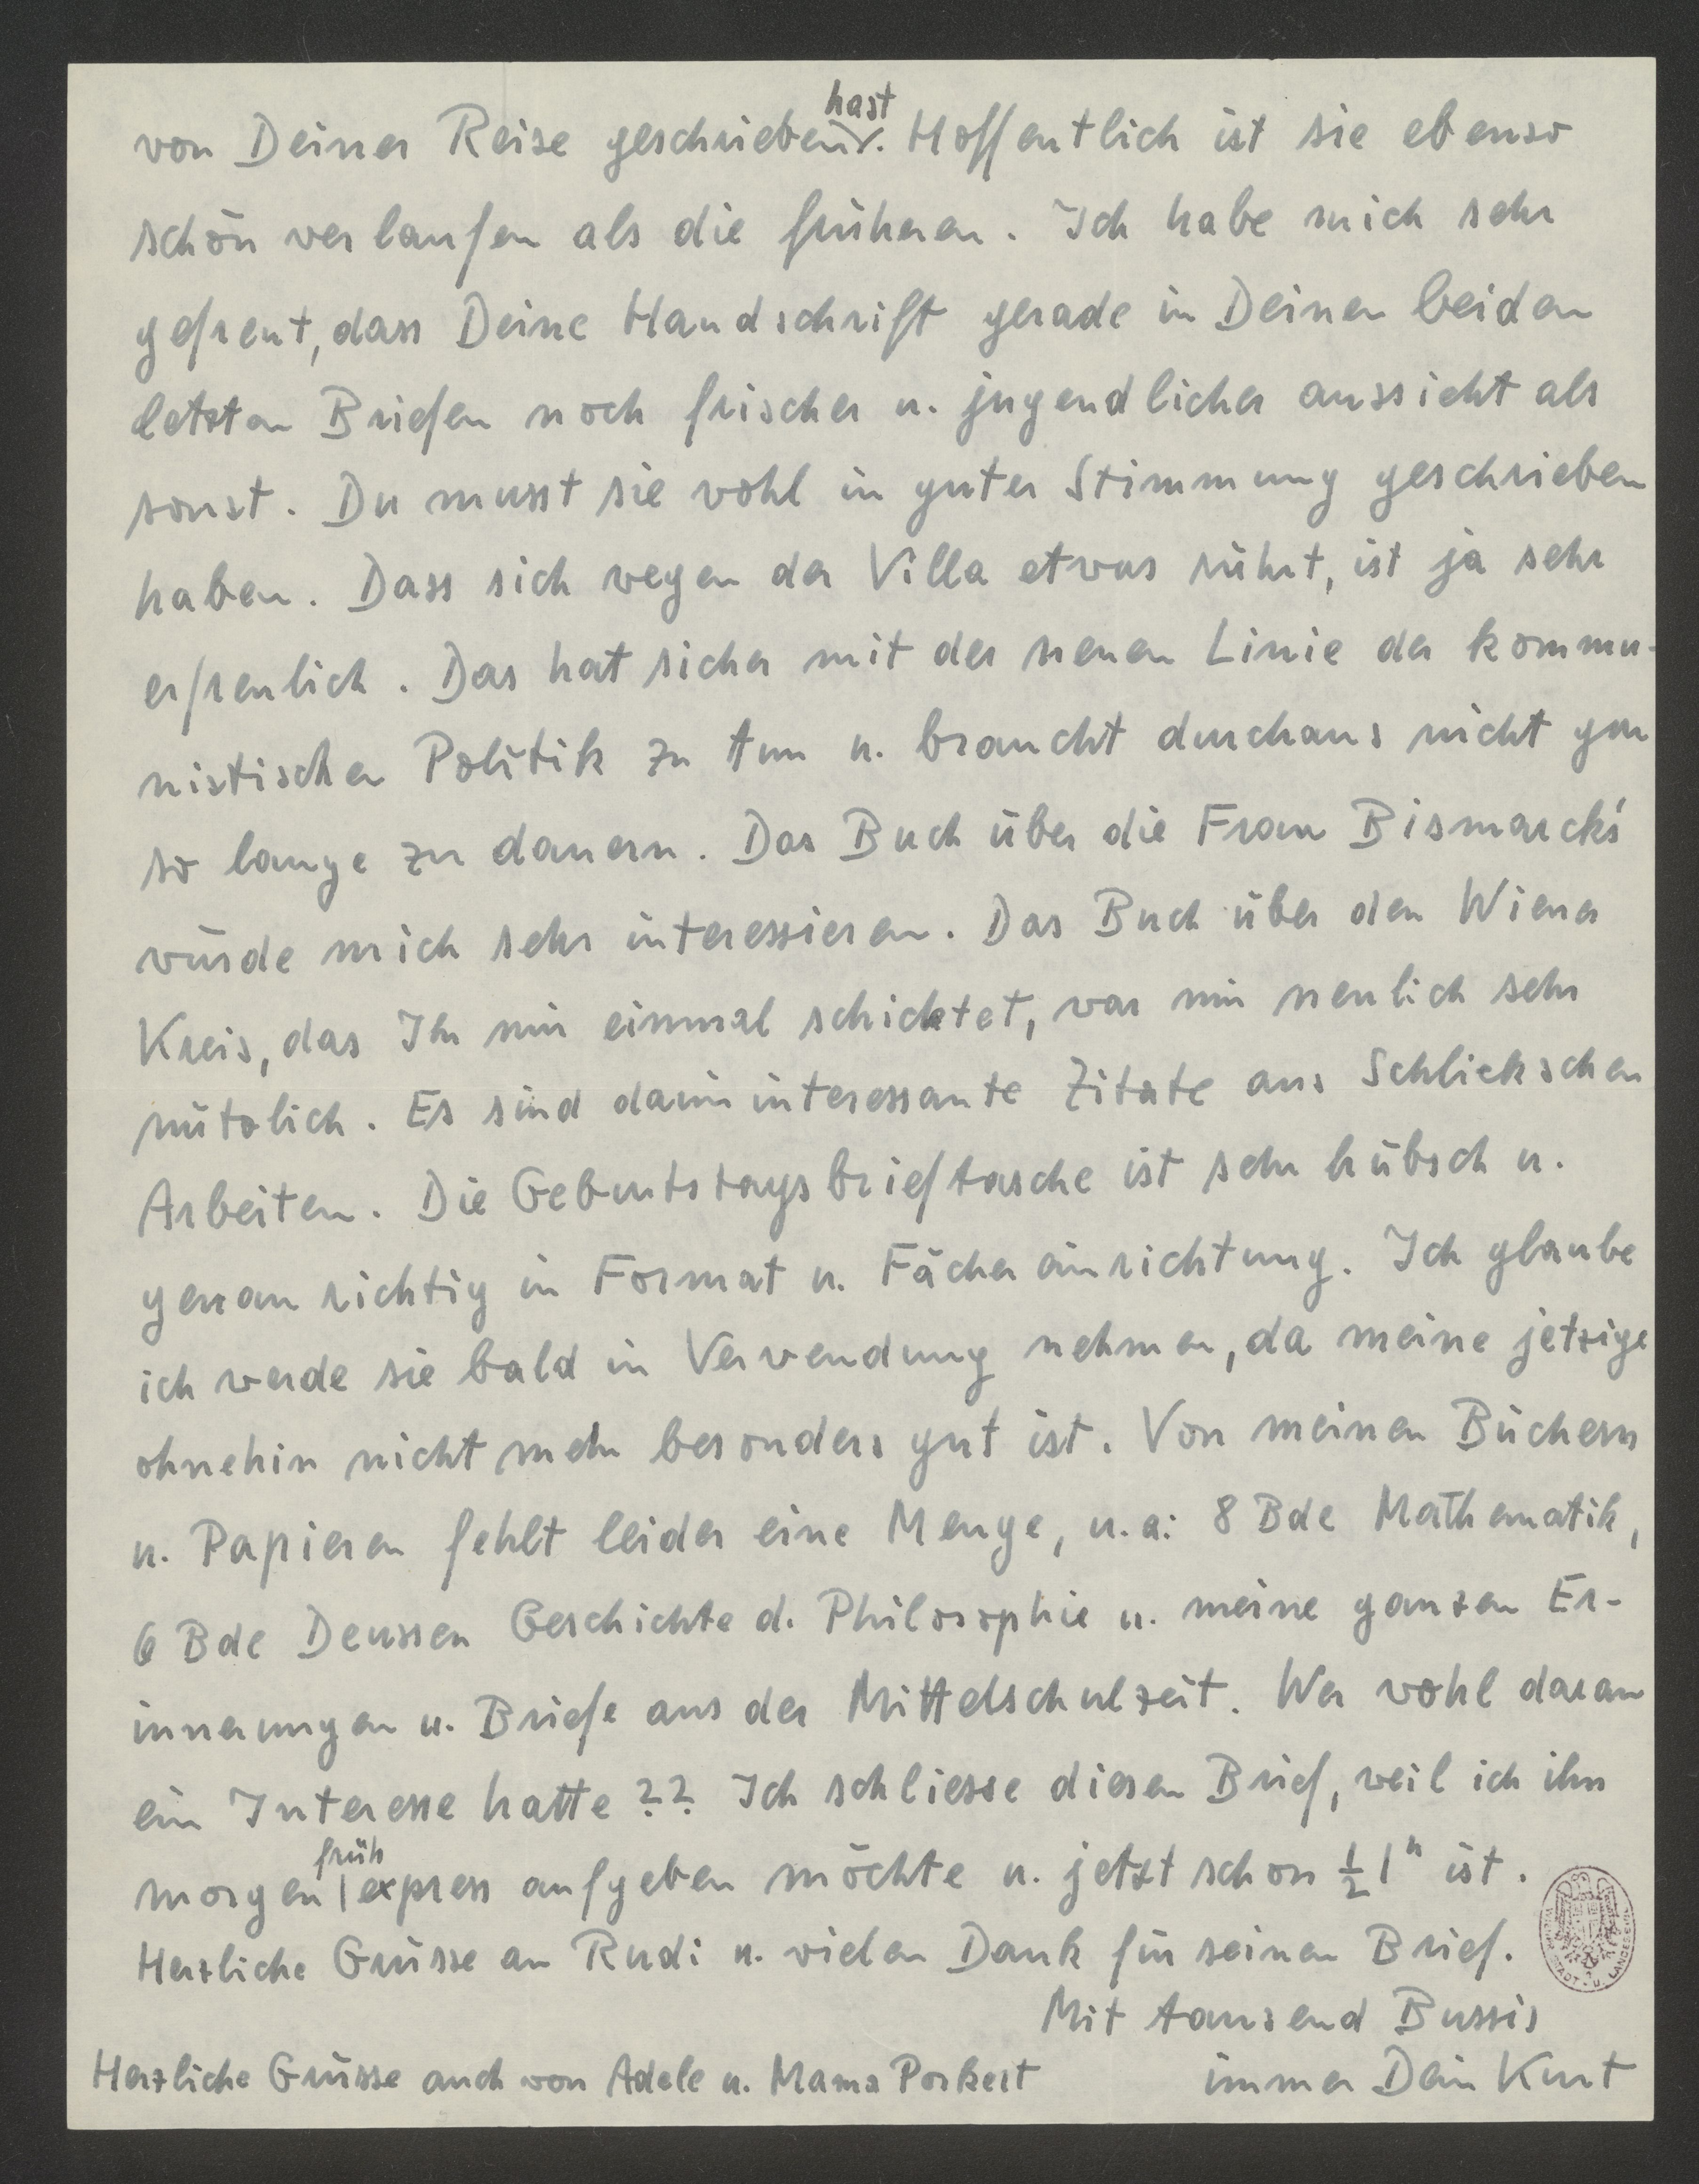 von Deiner Reise geschrieben hast. Hoffentlich ist sie ebenso
schön verlaufen als die früheren. Ich habe mich sehr
gefreut, dass Deine Handschrift gerade in Deinen beiden
letzten Briefen noch frischer u. jugendlicher aussieht als
sonst. Du musst sie wohl in guter Stimmung geschrieben
haben. Dass sich wegen der Villa etwas rührt, ist ja sehr
erfreulich. Das hat sicher mit der neuen Linie der kommu-
nistischen Politik zu tun u. braucht durchaus nicht gar
so lange zu dauern. Das Buch über die Frau Bismarck's
würde mich sehr interessieren. Das Buch über den Wiener
Kreis, das Ihr mir einmal schicktet, war mir neulich sehr
nützlich. Es sind darin interessante Zitate aus Schlickschen
Arbeiten. Die Geburtstagsbrieftasche ist sehr hübsch u.
genau richtig in Format u. Fächereinrichtung. Ich glaube
ich werde sie bald in Verwendung nehmen, da meine jetzige
ohnehin nicht mehr besonders gut ist. Von meinen Büchern
u. Papieren fehlt leider eine Menge, u.a: 8 Bde Mathematik,
6 Bde Deussen Geschichte d. Philosophie u. meine ganzen Er-
innerungen u. Briefe aus der Mittelschulzeit. Wer wohl daran
ein Interesse hatte?? Ich schliesse diesen Brief, weil ich ihn
morgen früh express aufgeben möchte u. jetzt schon ½1ʰ ist.
Herzliche Grüsse an Rudi u. vielen Dank für seinen Brief.
Mit tausend Bussis
immer Dein Kurt
Herzliche Grüsse auch von Adele u. Mama Porkert